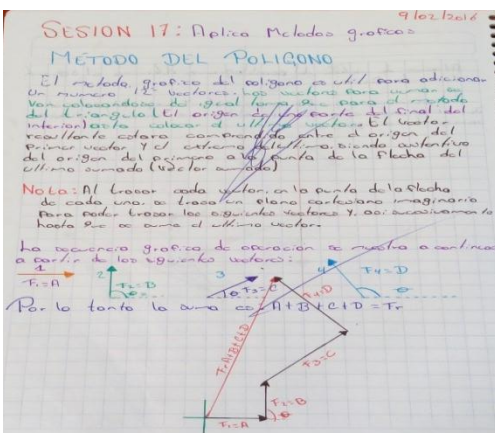 9/02/2016
SESION 17: Aplica Metodos graficos
METODO DEL POLIGONO
El metodo grafico del poligono es util para adicionar
un numero de vectores. Los vectores para sumar se
van colocandose de igual forma que para el metodo
del triangulo (El origen de parte del final del
interior) asta colocar el ultimo vector. El vector
resultante estara comprendido entre el origen del
Primer vector Y el extremo del ultimo, siendo
del origen del primero a la punta de la flecha del
ultimo sumado (vector sumado)
NOTA: Al trazar cada vector, en la punta de la flecha
de cada uno, se traza un plano cartesiano imaginario
Para poder trazar los siguientes vectores Y, asi sucesivamente
hasta que se sume el ultimo vector.
La secuencia grafica de operacion se muestra a continuac
a partir de los siguientes vectores:
1 F1=A
2 F2=B θ
3 θ F3=C
4 F4=D θ
Por lo tanto la suma es A+B+C+D=Fr
Fr A+B+C+D
F4=D
F3=C
F2=B
θ
F1=A